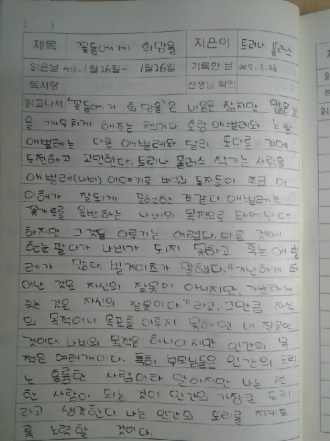 제목 꽃들에게 희망을 지은이 트리나 폴러스
읽은날 2012. 1월 26일~ 1월26일 기록한 날 2012. 1. 26
독서량 선생님 확인
읽고나서 '꽃들에게 희망을'은 내용은 짧지만 많은 것
을 깨우치게 해주는 책이다. 호랑 애벌레와 노랑
애벌레는 다른 애벌레와 달리 또다른
도전하고 고민한다. 트리나 폴러스 작가는 사람을
애벌레(나비) 이야기로 바꾸어 독자들이 조금 더
이해가 잘되게 표현한 것 같다. 애벌레는
꽃가루를 운반하는 나비의 목적으로 태어난다.
하지만 그것을 이루기는 어렵다. 다른 것에
한눈 팔다가 나비가 되지 못하고 죽는 애벌
레가 많다. 빌게이츠가 말했다. "가난하게 태
어난 것은 자신의 잘못이 아니지만 가난하게
죽는 것은 자신의 잘못이다." 라고, 그만큼 자신
의 목적이나 목표를 이루지 못하면 내 잘못인
것이다. 나비의 목적은 하나이지만 인간의 목
적은 여러개이다. 특히 부모님들은 인간의 도리
는 훌륭한 사람이라 말하지만 나는 선
한 사람이 되는 것이 인간의 가장큰 도리
라고 생각한다. 나는 인간의 도리를 지키도
록 노력할 것이다.